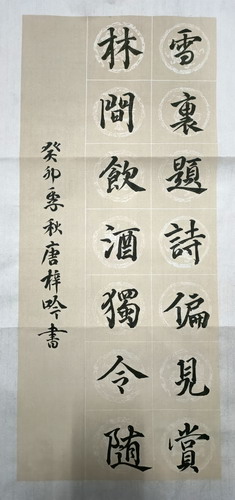 雪裏題詩偏見賞
林間飲酒獨令随
癸卯季秋唐梓吟書